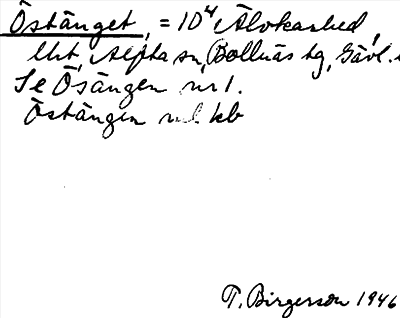 Östänget, = 10⁴ Älvkarhed,
Alfta sn, Bollnäs tg, Gävl.
Se Ösängen nr 1.
Östängen kb
T. Birgersson 1946